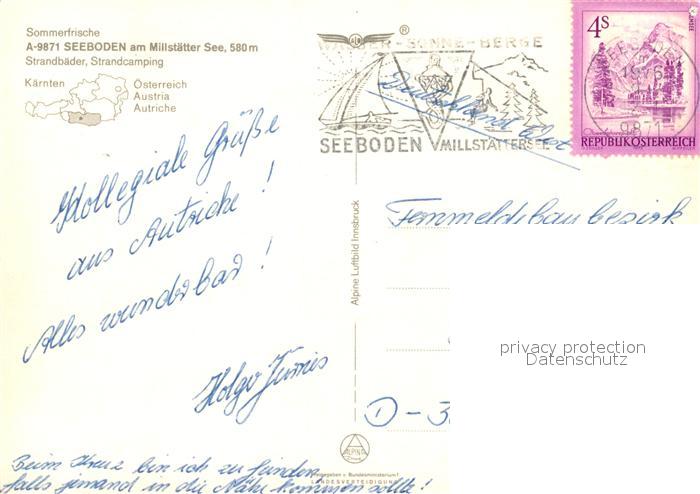 Sommerfrische
A-9871 SEEBODEN am Millstätter See, 580 m
Strandbäder, Strandcamping
Kärnten
Österreich
Austria
Autriche
WASSER-SONNE-BERGE
SEEBODEN MILLSTÄTTERSEE
4S
ALMSEE
9871
REPUBLIK ÖSTERREICH
Kollegiale Grüße
aus Autriche !
Alles wunderbar !
Holger
Beim Kreuz bin ich zu finden
falls jemand in die Nähe kommen sollte !
Alpine Luftbild Innsbruck
Fernmeldebaubezirk
D-3
privacy protection
Datenschutz
ALPINE
Freigegeben v. Bundesministerium f.
LANDESVERTEIDIGUNG